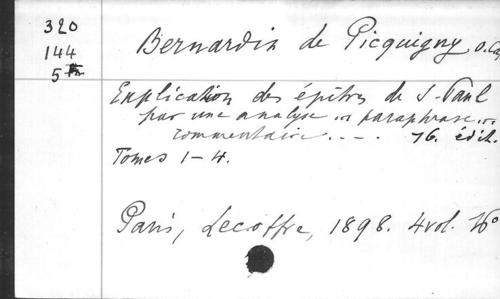 320
144
5
Bernardin de Picquigny O. Cap
Explication des épitres de S. Paul
par une analyse ... paraphrase ...
commentaire .... 16. édit.
Tomes 1-4.
Paris, Lecoffre, 1898. 4 vol. 16°